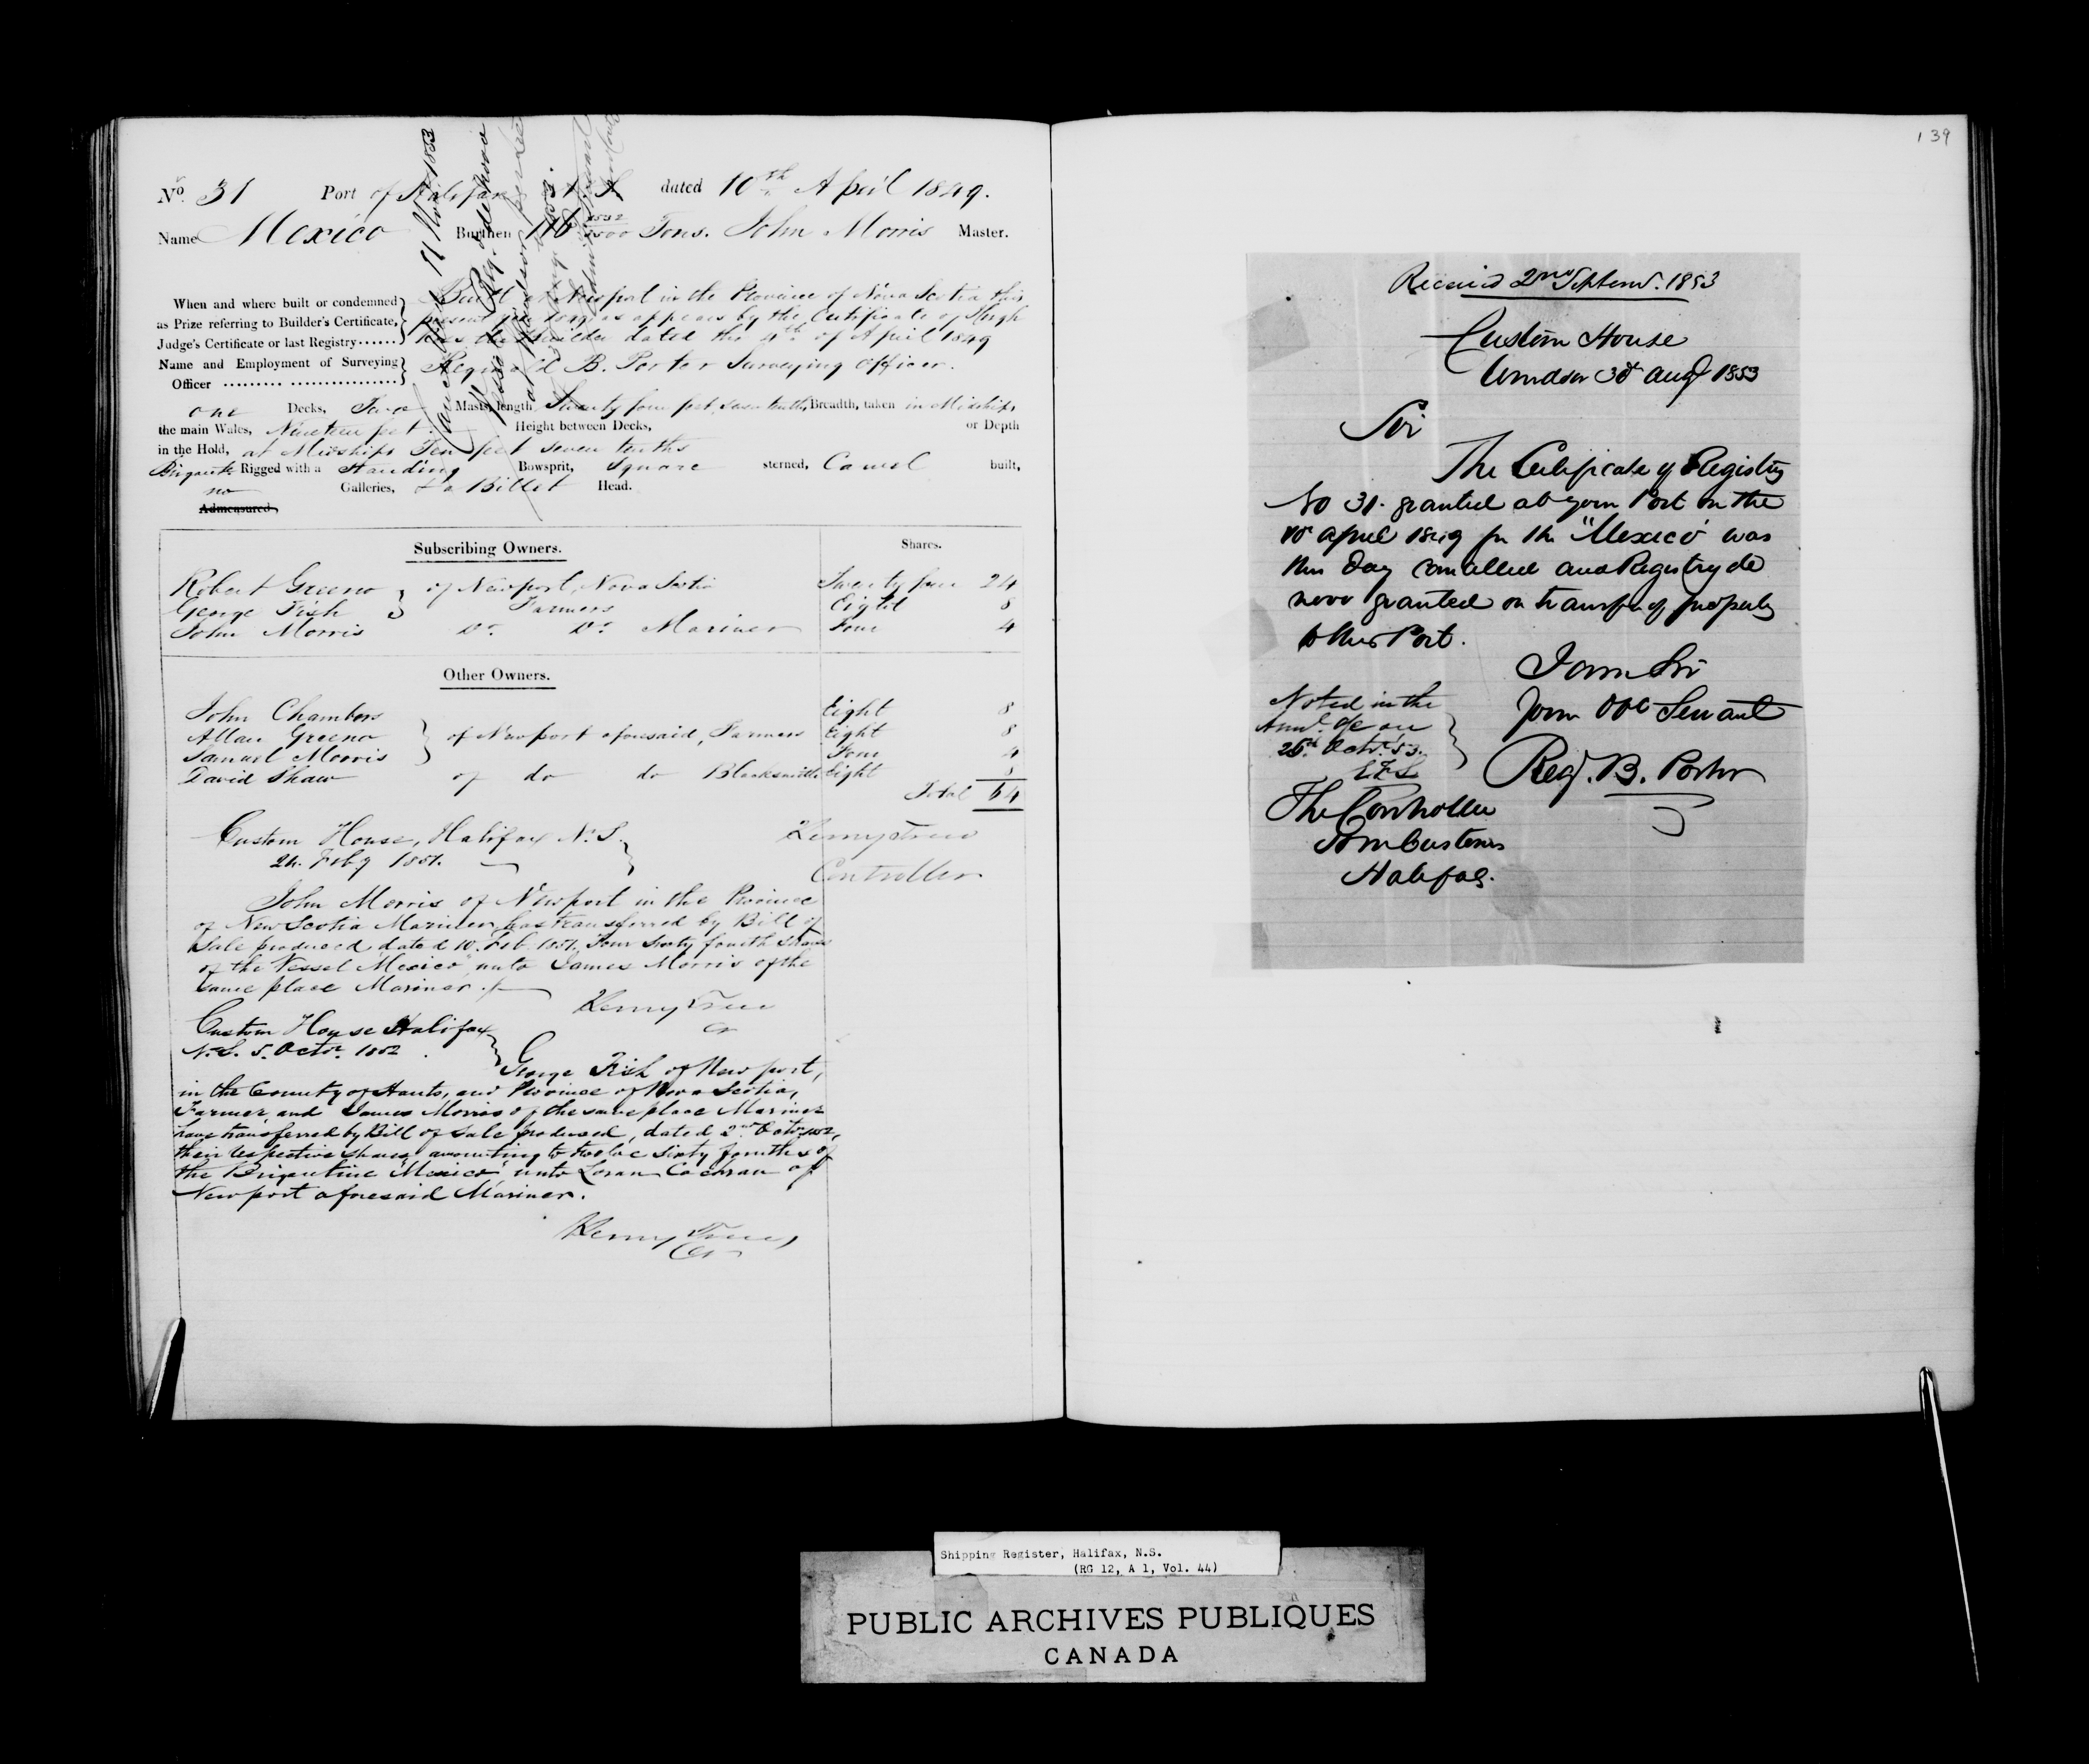 No. 31 Port of Halifax N S dated 10th April 1849.
Name Mexico Burthen 116 Tons. John Morris Master.
When and where built or condemned
as Prize referring to Builder's Certificate,
Judge's Certificate or last Registry......
Built at Newport in the Province of Nova Scotia this
present year 1849 as appears by the Certificate of Hugh
the Builder dated the 4th of April 1849
Name and Employment of Surveying
Officer
Reginald B. Porter Surveying Officer.
one Decks, Two Masts, length Seventy four feet, seven tenths, Breadth, taken in Midships,
the main Wales, Nineteen feet Height between Decks, or Depth
in the Hold, at Midships Ten feet seven tenths
Brigantine Rigged with a Standing Bowsprit, Square sterned, Carvel built,
no Galleries, & a Billet Head.
Admeasured
Cancelled 1853
Subscribing Owners. Shares.
Robert Greeno of Newport, Nova Scotia Twenty four 24
George Fish Farmers Eight 8
John Morris Do. Do. Mariner Four 4
Other Owners.
John Chambers Eight 8
Allan Greeno of Newport aforesaid, Farmers Eight 8
Samuel Morris Four 4
David Shaw of do do Blacksmith Eight 8
Total 64
Custom House, Halifax N. S.
24. Feby 1851.
Henry Trew
Controller
John Morris of Newport in the Province
of New Scotia Mariner, has transferred by Bill of
Sale produced dated 10. Feb. 1851. Four Sixty fourth Shares
of the Vessel "Mexico" unto James Morris of the
same place Mariner.
Henry Trew
Cr
Custom House Halifax
N.S. 5. Octr. 1852
George Fish of Newport,
in the County of Hants, and Province of Nova Scotia,
Farmer, and James Morris of the same place Mariner
have transferred by Bill of Sale produced, dated 2nd Octr. 1852,
their respective shares amounting to twelve Sixty fourths of
the Brigantine "Mexico" unto Loran Cochran of
Newport aforesaid Mariner.
Henry Trew
Cr
139
Received 2nd Septemr. 1853
Custom House
Windsor 30 Augt 1853
Sir
The Certificate of Registry
No 31. granted at your Port on the
10 April 1849 for the "Mexico" was
this Day cancelled and Registry de
novo granted on transfer of property
to this Port.
I am Sir
Your Obt Servant
Reg. B. Porter
Noted in the
on
Octr. 53.
The Controller
Customs
Halifax.
Shipping Register, Halifax, N.S.
(RG 12, A 1, Vol. 44)
PUBLIC ARCHIVES PUBLIQUES
CANADA